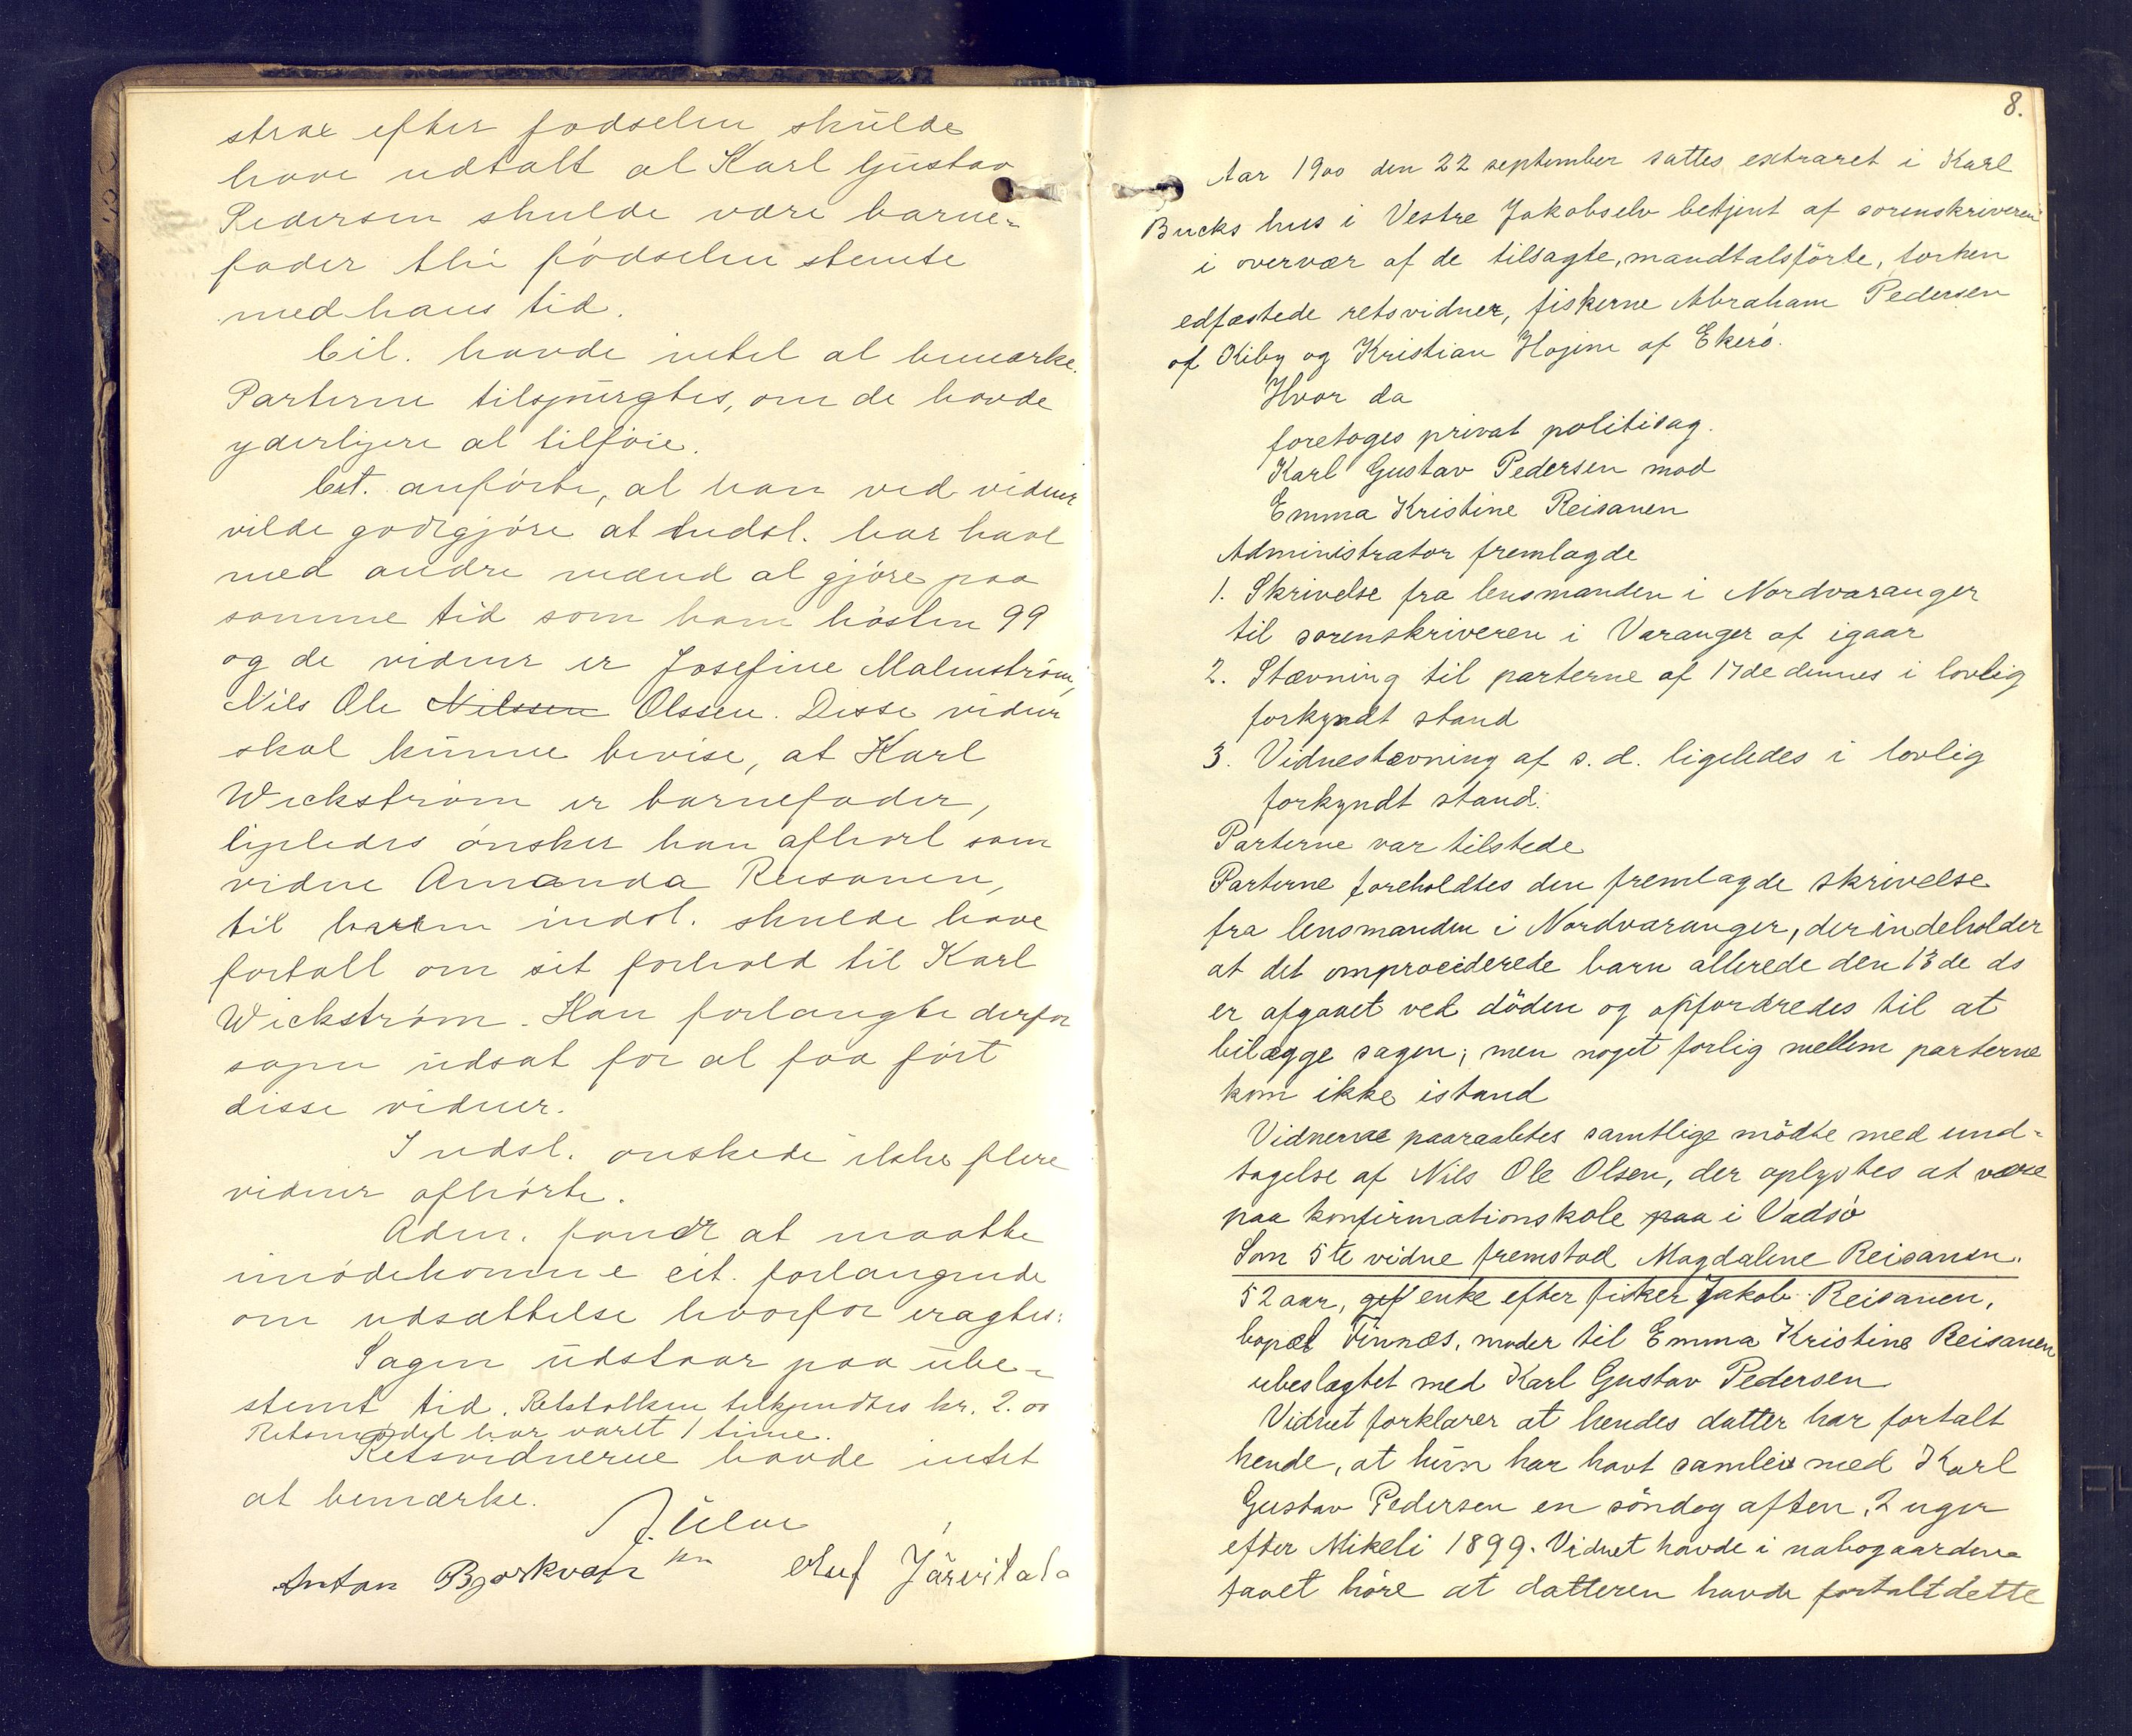 strax efter fødselen skulde
have udtalt at Karl Gustav
Pedersen skulde være barne-
fader thi fødselen stemte
med hans tid.
Cit. havde intet at bemærke.
Parterne tilspurgtes, om de havde
yderligere at tilføie.
Cit. anførte, at han ved vidner
vilde godtgjøre at indst. har havt
med andre mænd at gjøre paa
samme tid som ham høsten 99
og de vidner er Josefine Malmström,
Nils Ole Nilssen Olssen. Disse vidner
skal kunne bevise, at Karl
Wickstrøm er barnefader,
ligeledes ønsker han afhørt som
vidne Amanda Reisanen,
til hvem indst. skulde have
fortalt om sit forhold til Karl
Wickstrøm. Han forlangte derfor
sagen udsat for at faa ført
disse vidner.
Indst. ønskede ikke flere
vidner afhørte.
Adm. fandt at maatte
imødekomme cit. forlangende
om udsættelse hvorfor eragtes:
Sagen udstaar paa ube-
stemt tid. Retstolken tilkjendtes kr. 2.00
Retsmødet har varet 1 time.
Retsvidnerne havde intet
at bemærke.
Anton Bjørkvah Oluf Järvitalo
8.
Aar 1900 den 22 september sattes extraret i Karl
Bucks hus i Vestre Jakobselv betjent af sorenskriveren
i overvær af de tilsagte, mandtalsförte, forhen
edfæstede retsvidner, fiskerne Abraham Pedersen
af Kiby og Kristian Hojem af Ekerö.
Hvor da
foretoges privat politisag.
Karl Gustav Pedersen mod
Emma Kristine Reisanen
Administrator fremlagde
1. Skrivelse fra lensmanden i Nordvaranger
til sorenskriveren i Varanger af igaar
2. Stævning til parterne af 17de dennes i lovlig
forkyndt stand
3. Vidnestævning af s. d. ligeledes i lovlig
forkyndt stand.
Parterne var tilstede
Parterne foreholdtes den fremlagde skrivelse
fra lensmanden i Nordvaranger, der indeholder
at det omprociderede barn allerede den 13de ds
er afgaaet ved döden og opfordredes til at
bilægge sagen; men noget forlig mellem parterne
kom ikke istand
Vidnerne paaraabtes samtlige mödte med und-
tagelse af Nils Ole Olsen, der oplystes at være
paa konfirmationskole paa i Vadsö
Som 5te vidne fremstod Magdalene Reisanen.
52 aar, gift enke efter fisker Jakob Reisanen,
bopæl Finnæs, moder til Emma Kristine Reisanen
ubeslægtet med Karl Gustav Pedersen
Vidnet forklarer at hendes datter har fortalt
hende, at hun har havt samleie med Karl
Gustav Pedersen en söndag aften, 2 uger
efter Mikeli 1899. Vidnet havde i nabogaardene
faaet höre at datteren havde fortalt dette